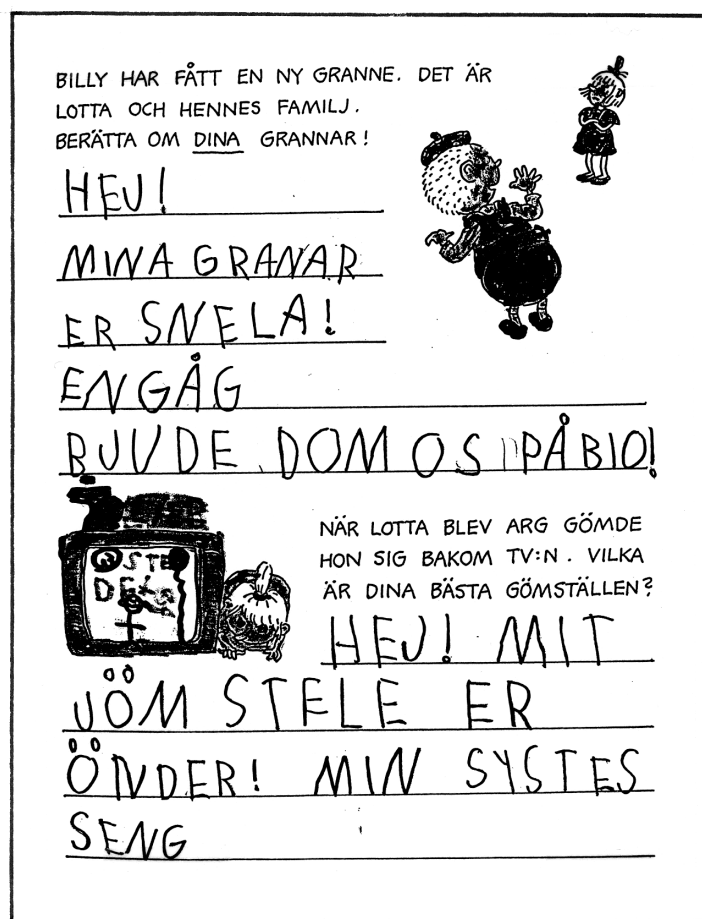 BILLY HAR FÅTT EN NY GRANNE. DET ÄR
LOTTA OCH HENNES FAMILJ.
BERÄTTA OM DINA GRANNAR!
HEJ!
MINA GRANAR
ER SNELA!
ENGÅG
BJUDE DOM OS PÅ BIO!
NÄR LOTTA BLEV ARG GÖMDE
HON SIG BAKOM TV:N. VILKA
ÄR DINA BÄSTA GÖMSTÄLLEN?
HEJ! MIT
JÖM STELE ER
ÖNDER! MIN SYSTES
SENG